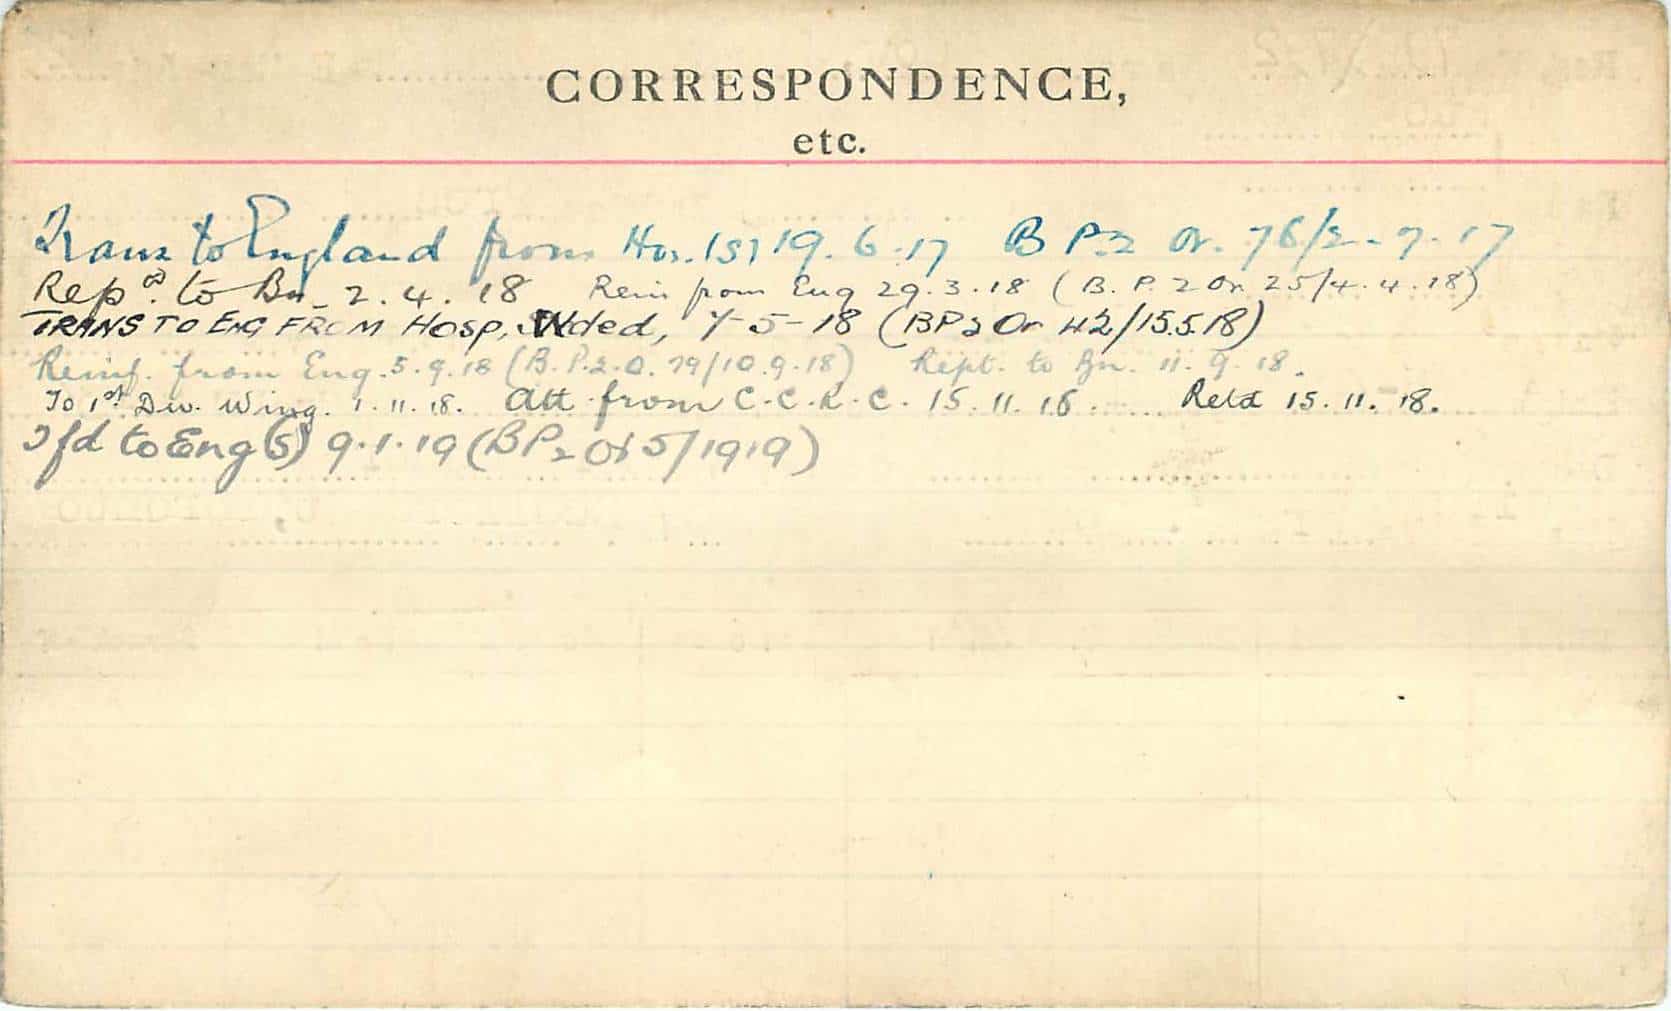 CORRESPONDENCE,
etc.
Trans to England from Hos. (S) 19.6.17 B P.2 Or. 76/2-7-17
Rep^d. to Bn_ 2.4.18 Rein from Eng 29.3.18 (B.P.2 Or 25/4.4.18)
TRANS TO ENG FROM Hosp, Wded, 7-5-18 (BP2 Or 42/15.5.18)
Reinf. from Eng. 5.9.18 (B.P.2.O. 79/10.9.18) Rept. to Bn. 11.9.18.
To 1st Div. Wing. 1.11.18. Att from C.C.R.C. 15.11.18. Retd 15.11.18.
Tfd to Eng (S) 9.1.19 (BP2 Or 5/1919)